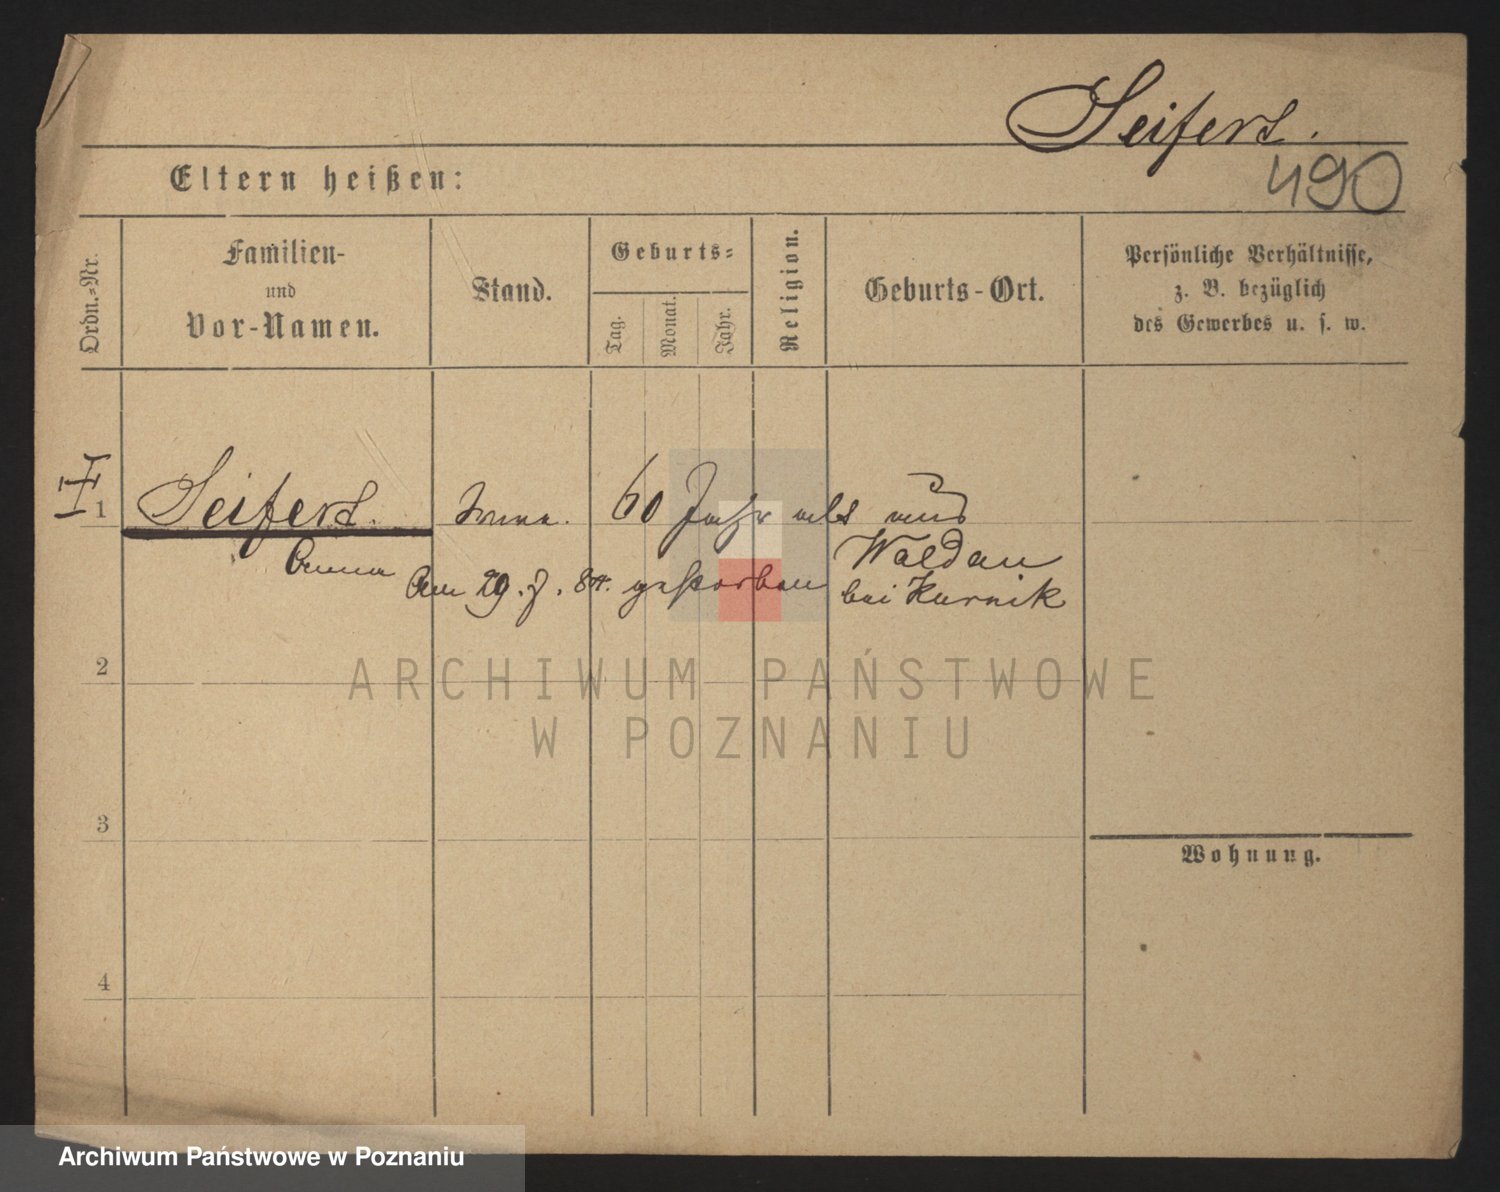 Seifert.
490
Eltern heißen:
Ordn.-Nr.
Familien-
und
Vor-Namen.
Stand.
Geburts-
Tag.
Monat.
Jahr.
Religion.
Geburts-Ort.
Persönliche Verhältnisse,
z. B. bezüglich
des Gewerbes u. s. w.
1 Seifert. 60 Jahr alt aus
Anna Waldau
Am 29. 7. 84. gestorben bei Kurnik
2
ARCHIWUM PAŃSTWOWE
W POZNANIU
3
Wohnung.
4
Archiwum Państwowe w Poznaniu